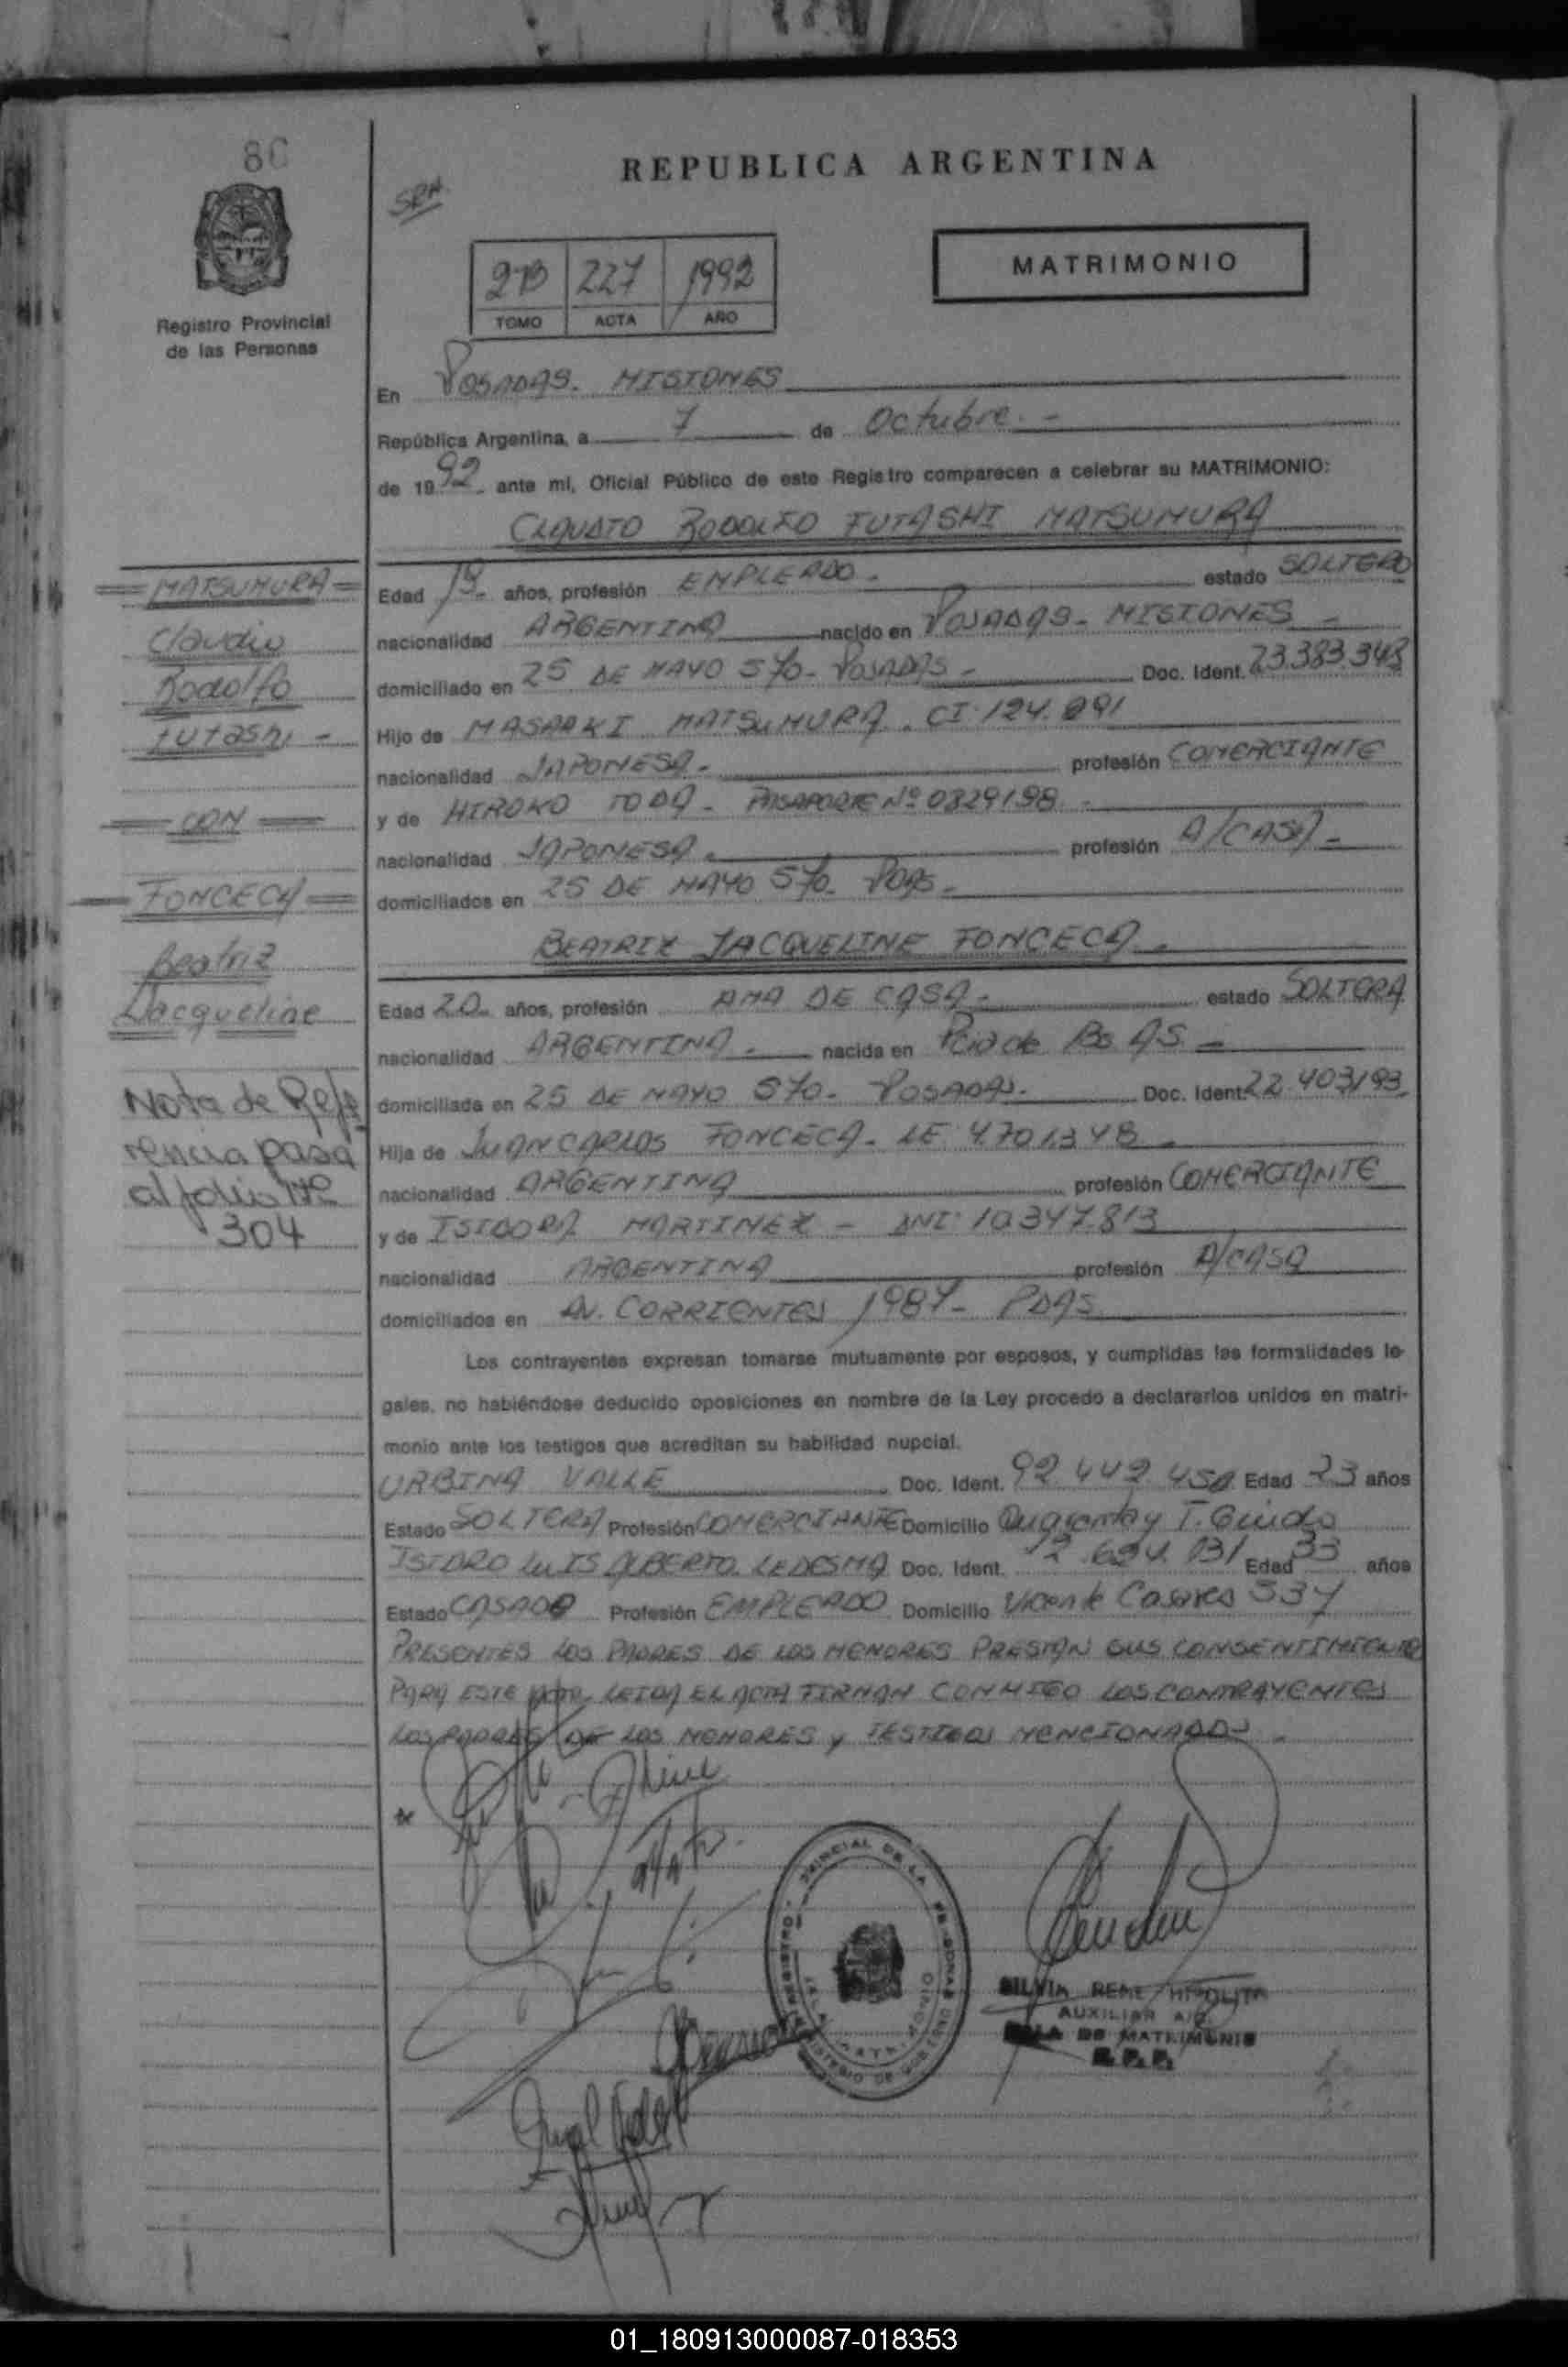 80
REPUBLICA ARGENTINA
227 1992
TOMO ACTA AÑO
MATRIMONIO
Registro Provincial
de las Personas
En POSADAS. MISIONES
República Argentina, a 7 de Octubre. -
de 1992 ante mí, Oficial Público de este Registro comparecen a celebrar su MATRIMONIO:
CLAUDIO RODOLFO FUTASHI MATSUMURA
Edad 19 años, profesión EMPLEADO. estado SOLTERO
nacionalidad ARGENTINA nacido en POSADAS - MISIONES -
domiciliado en 25 DE MAYO 570 - POSADAS - Doc. Ident. 23.383.348
Hijo de MASAAKI MATSUMURA. CI. 124.
nacionalidad JAPONESA. profesión COMERCIANTE
y de HIROKO TODA - PASAPORTE Nº 0829198 -
nacionalidad JAPONESA. profesión A/CASA -
domiciliados en 25 DE MAYO 570 - PDAS -
BEATRIZ JACQUELINE FONCECA.
Edad 20 años, profesión AMA DE CASA - estado SOLTERA
nacionalidad ARGENTINA. nacida en Pcia de Bs AS. -
domiciliada en 25 DE MAYO 570 - POSADAS. Doc. Ident. 22.403193
Hija de JUAN CARLOS FONCECA - LE 4.701.348 -
nacionalidad ARGENTINA profesión COMERCIANTE
y de ISIDORA MARTINEZ - DNI 10.347.813
nacionalidad ARGENTINA profesión A/CASA
domiciliados en AV. CORRIENTES 1987 - PDAS
Los contrayentes expresan tomarse mutuamente por esposos, y cumplidas las formalidades le-
gales, no habiéndose deducido oposiciones en nombre de la Ley procedo a declararlos unidos en matri-
monio ante los testigos que acreditan su habilidad nupcial.
URBINA VALLE Doc. Ident. 92.442.450 Edad 23 años
Estado SOLTERA Profesión COMERCIANTE Domicilio y T. Guido
ISIDRO LUIS ALBERTO LEDESMA Doc. Ident. 12.694.131 Edad 33 años
Estado CASADO Profesión EMPLEADO Domicilio Vicente Casares 537
PRESENTES LOS PADRES DE LOS MENORES PRESTAN SUS CONSENTIMIENTO
PARA ESTE ACTO, LEIDA EL ACTA FIRMAN CONMIGO LOS CONTRAYENTES
LOS PADRES DE LOS MENORES y TESTIGOS MENCIONADOS -
MATSUMURA
Claudio
Rodolfo
Futashi -
CON
FONCECA
Beatriz
Jacqueline
Nota de Refe
rencia pasa
al folio Nº
304
SILVIA RENE HIPOLITA
AUXILIAR A/C.
SALA DE MATRIMONIO
R. P. P.
01_180913000087-018353